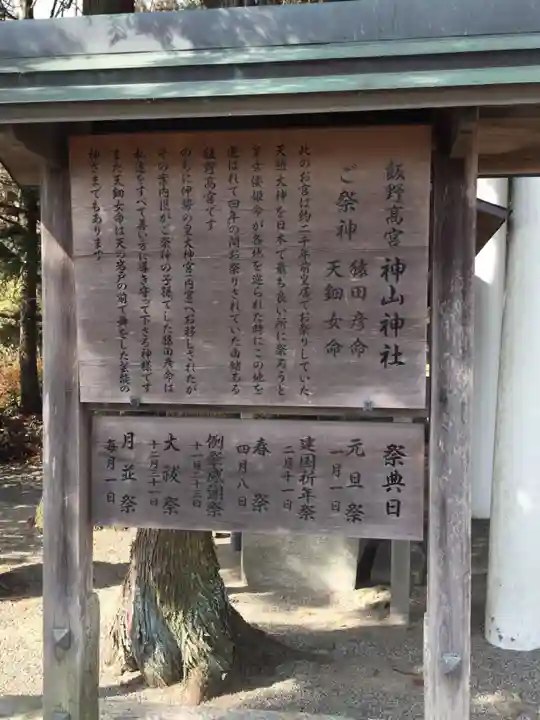 飯野高宮 神山神社
ご祭神 猿田彦命
天鈿女命
此のお宮は約二千年前皇居でお祭りしていた
天照大神を日本で最も良い所に祭ろうと
倭姫命が各地を巡られた時にこの地を
選ばれて四年の間お祭りされていた由緒ある
飯野高宮です
のちに伊勢の皇大神宮(内宮)へお移しされたが
その案内役がご祭神の子孫でした猿田彦命は
私達をすべて善い方に導き守って下さる神様です
また天鈿女命は天の岩戸の前で舞をした芸能の
神さまでもあります
祭典日
元旦祭
一月一日
建国祈年祭
二月十一日
春祭
四月八日
例祭感謝祭
十一月二十三日
大祓祭
十二月三十一日
月並祭
毎月一日